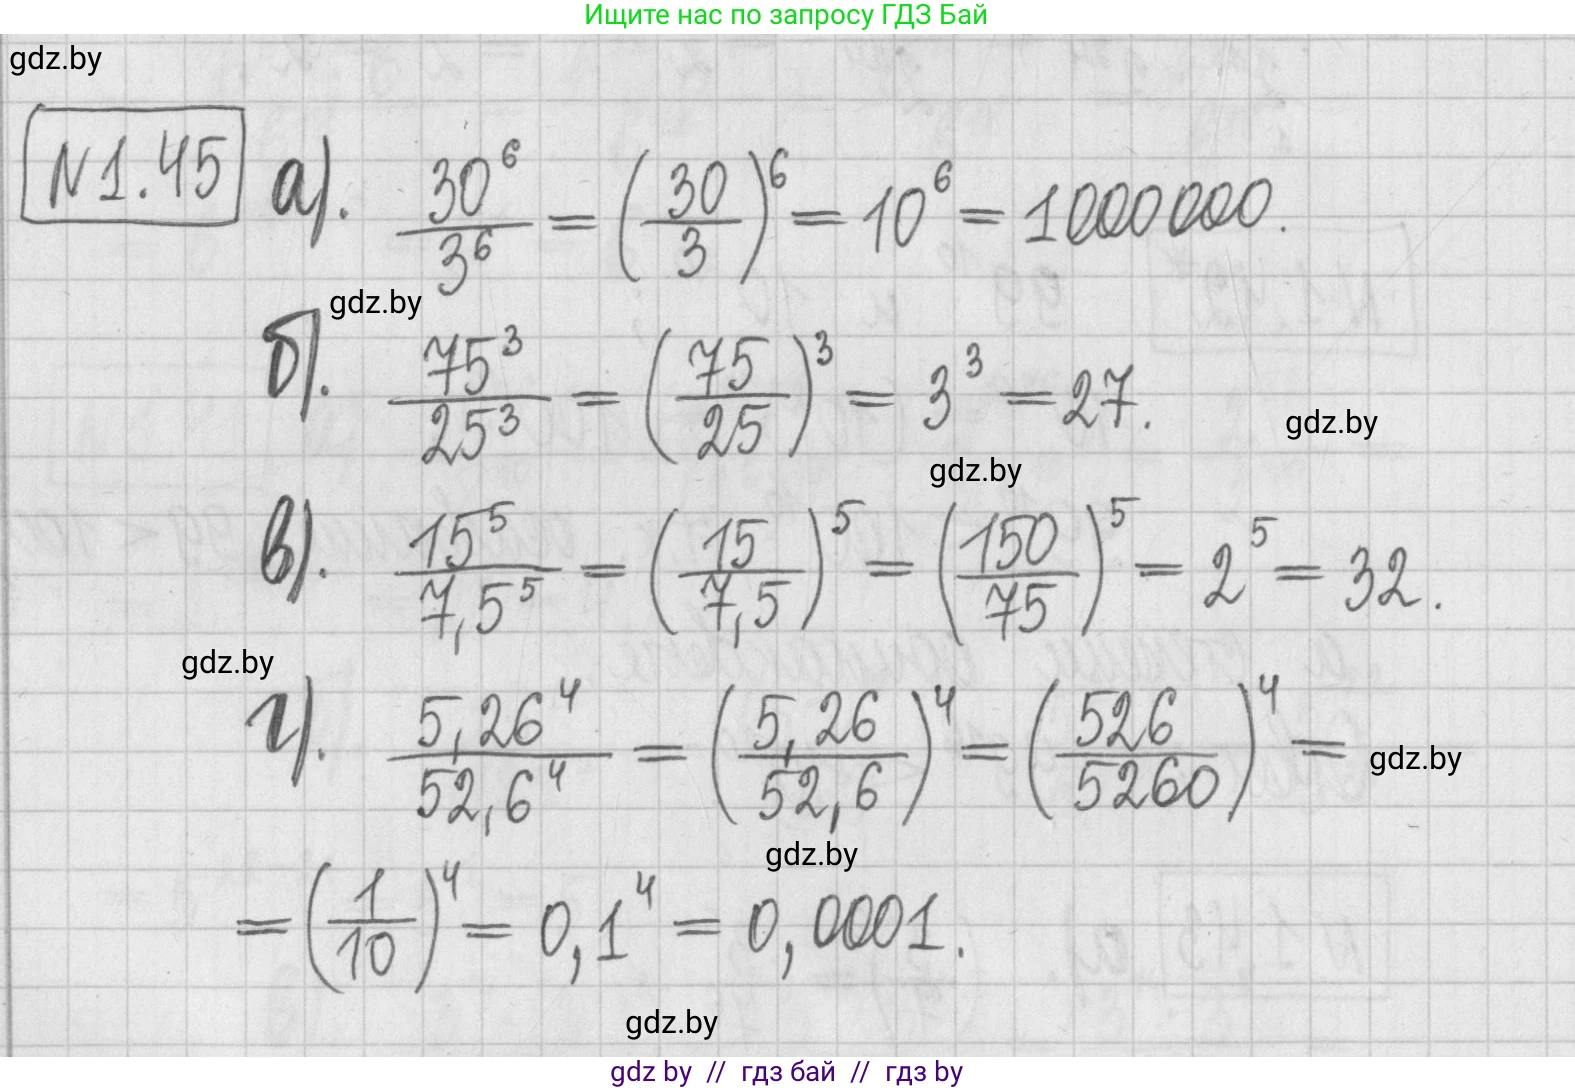 Ищите нас по запросу ГДЗ Бай
gdz.by
N1.45 а). 30^6/3^6 = (30/3)^6 = 10^6 = 1000000.
gdz.by
б). 75^3/25^3 = (75/25)^3 = 3^3 = 27.
gdz.by
gdz.by
в). 15^5/7,5^5 = (15/7,5)^5 = (150/75)^5 = 2^5 = 32.
gdz.by
г). 5,26^4/52,6^4 = (5,26/52,6)^4 = (526/5260)^4 =
gdz.by
gdz.by
= (1/10)^4 = 0,1^4 = 0,0001.
gdz.by
gdz by // гдз бай // gdz by